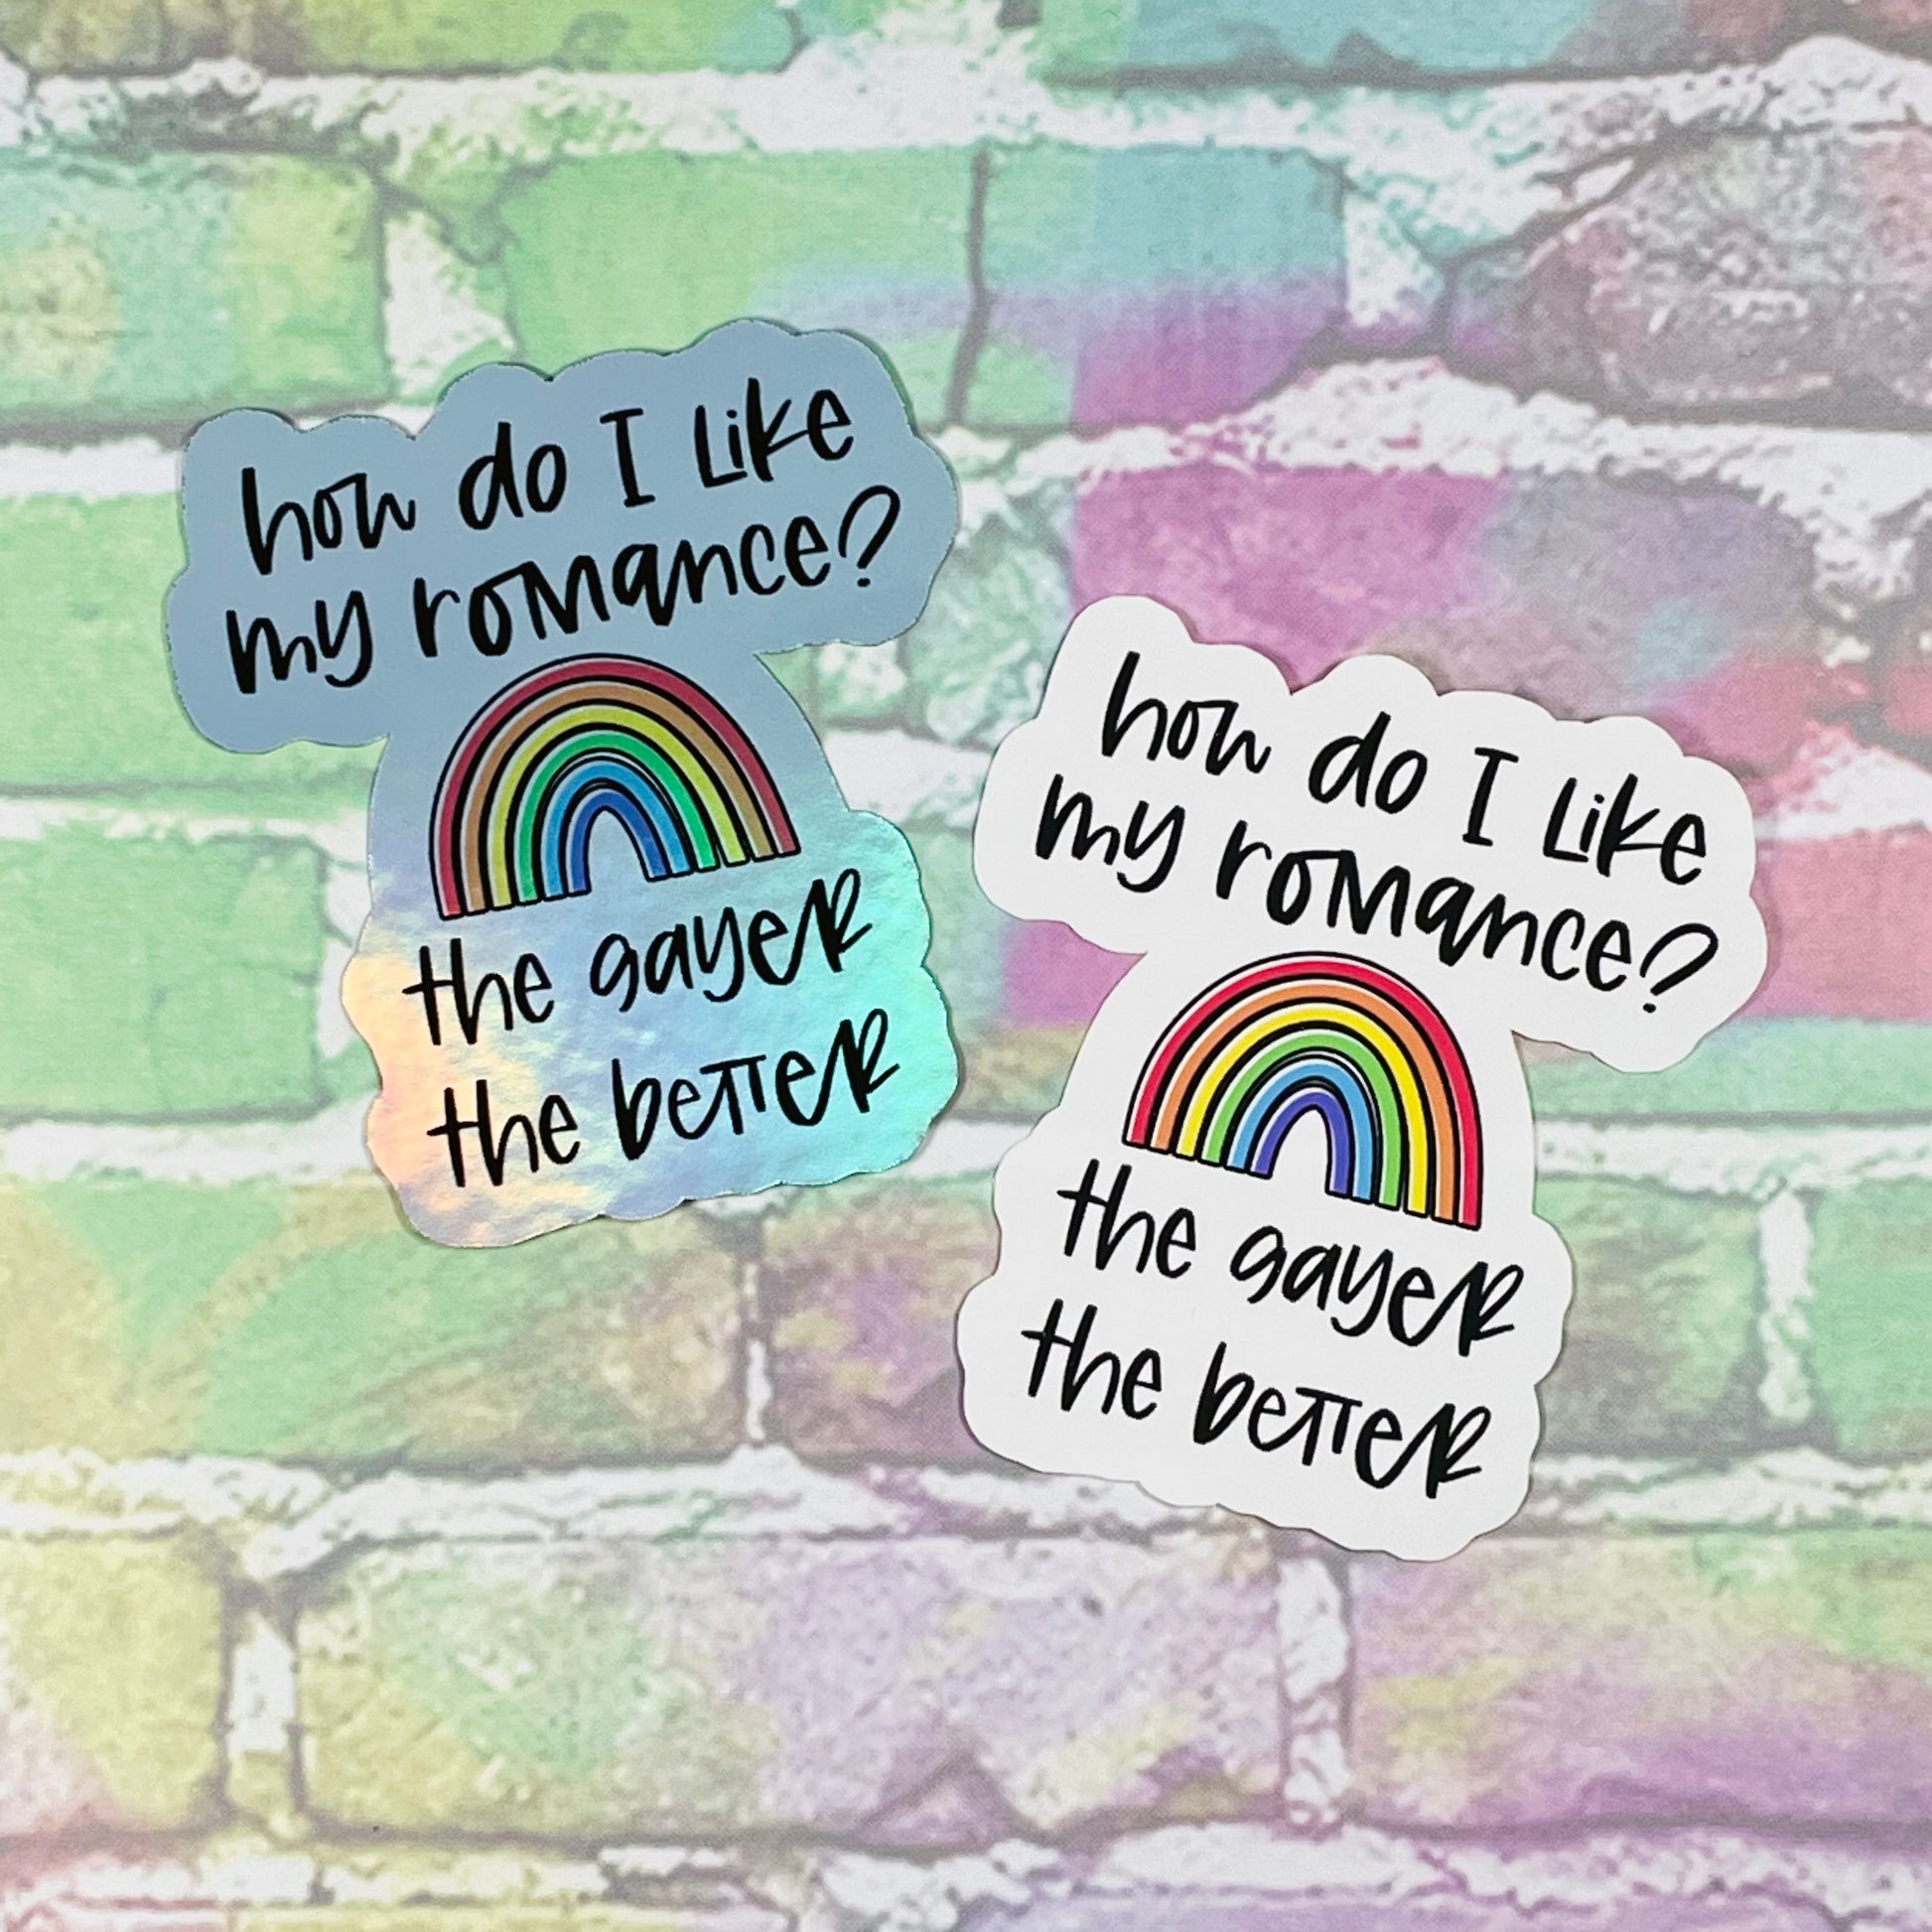 how do I like
my romance?
the gayer
the better
how do I like
my romance?
the gayer
the better